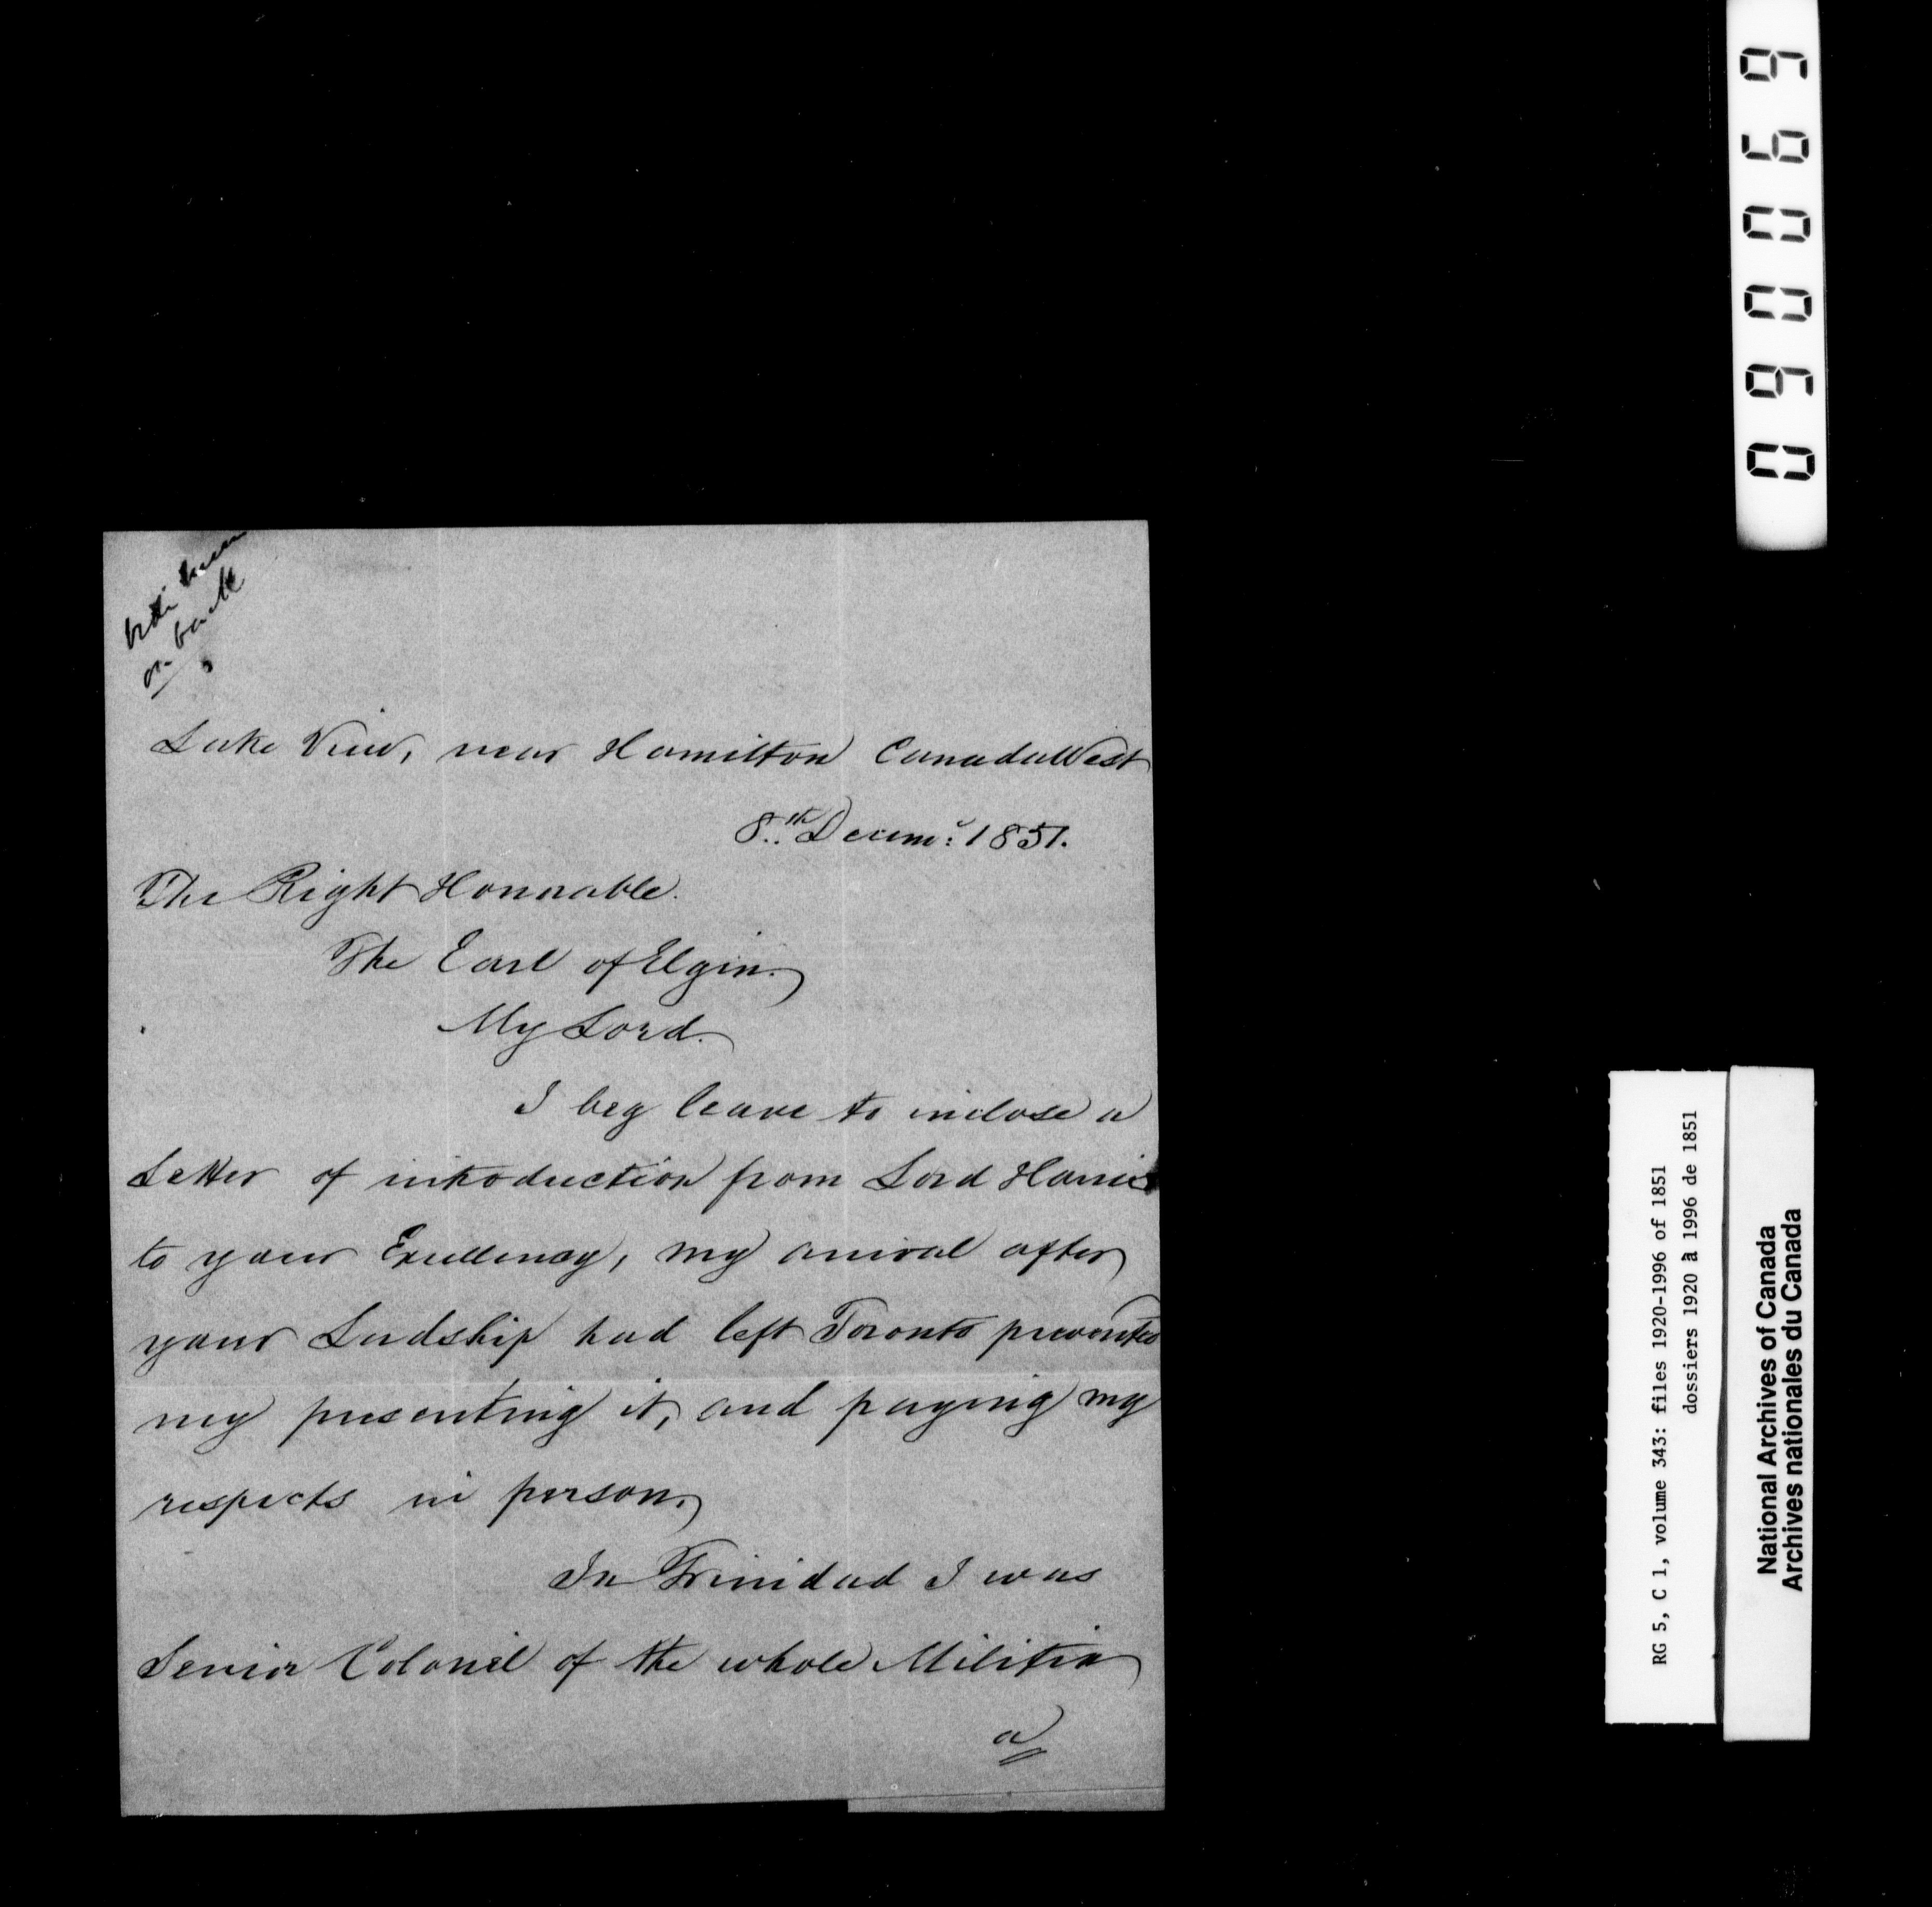 on back
Lake View, near Hamilton Canada West
8th Decemr: 1851.
The Right Honorable.
The Earl of Elgin.
My Lord.
I beg leave to inclose a
Letter of introduction from Lord Harris
to your Excellency, my arrival after
your Lordship had left Toronto prevented
my presenting it, and paying my
respects in person.
In Trinidad I was
Senior Colonel of the whole Militia
a
090069
RG 5, C 1, volume 343: files 1920-1996 of 1851
dossiers 1920 à 1996 de 1851
National Archives of Canada
Archives nationales du Canada